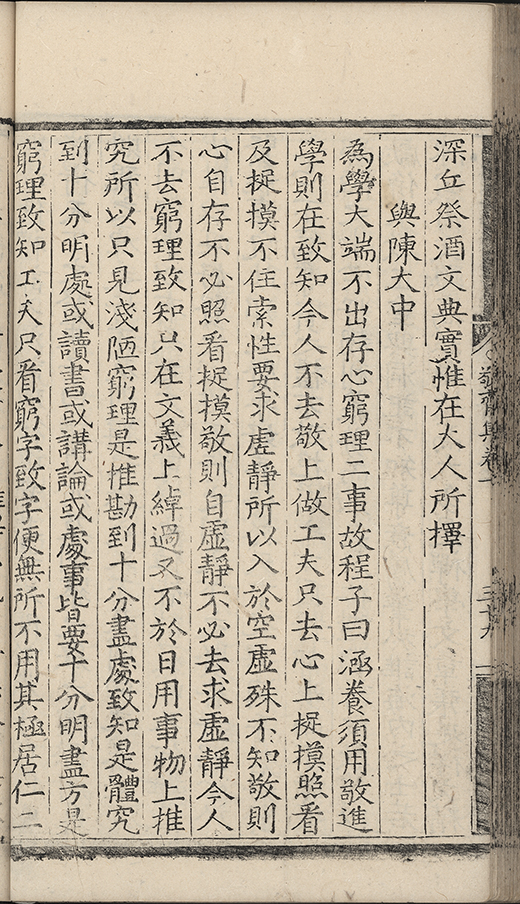 深丘祭酒文典實惟在大人所擇
與陳大中
為學大端不出存心窮理二事故程子曰涵養須用敬進
學則在致知今人不去敬上做工夫只去心上捉摸照看
及捉摸不住索性要求虛靜所以入於空虛殊不知敬則
心自存不必照看捉摸敬則自虛靜不必去求虛靜今人
不去窮理致知只在文義上綽過又不於日用事物上推
究所以只見淺陋窮理是推勘到十分盡處致知是體究
到十分明處或讀書或講論或處事皆要十分明盡方是
窮理致知工夫只看窮字致字便無所不用其極居仁二
敬齋集卷